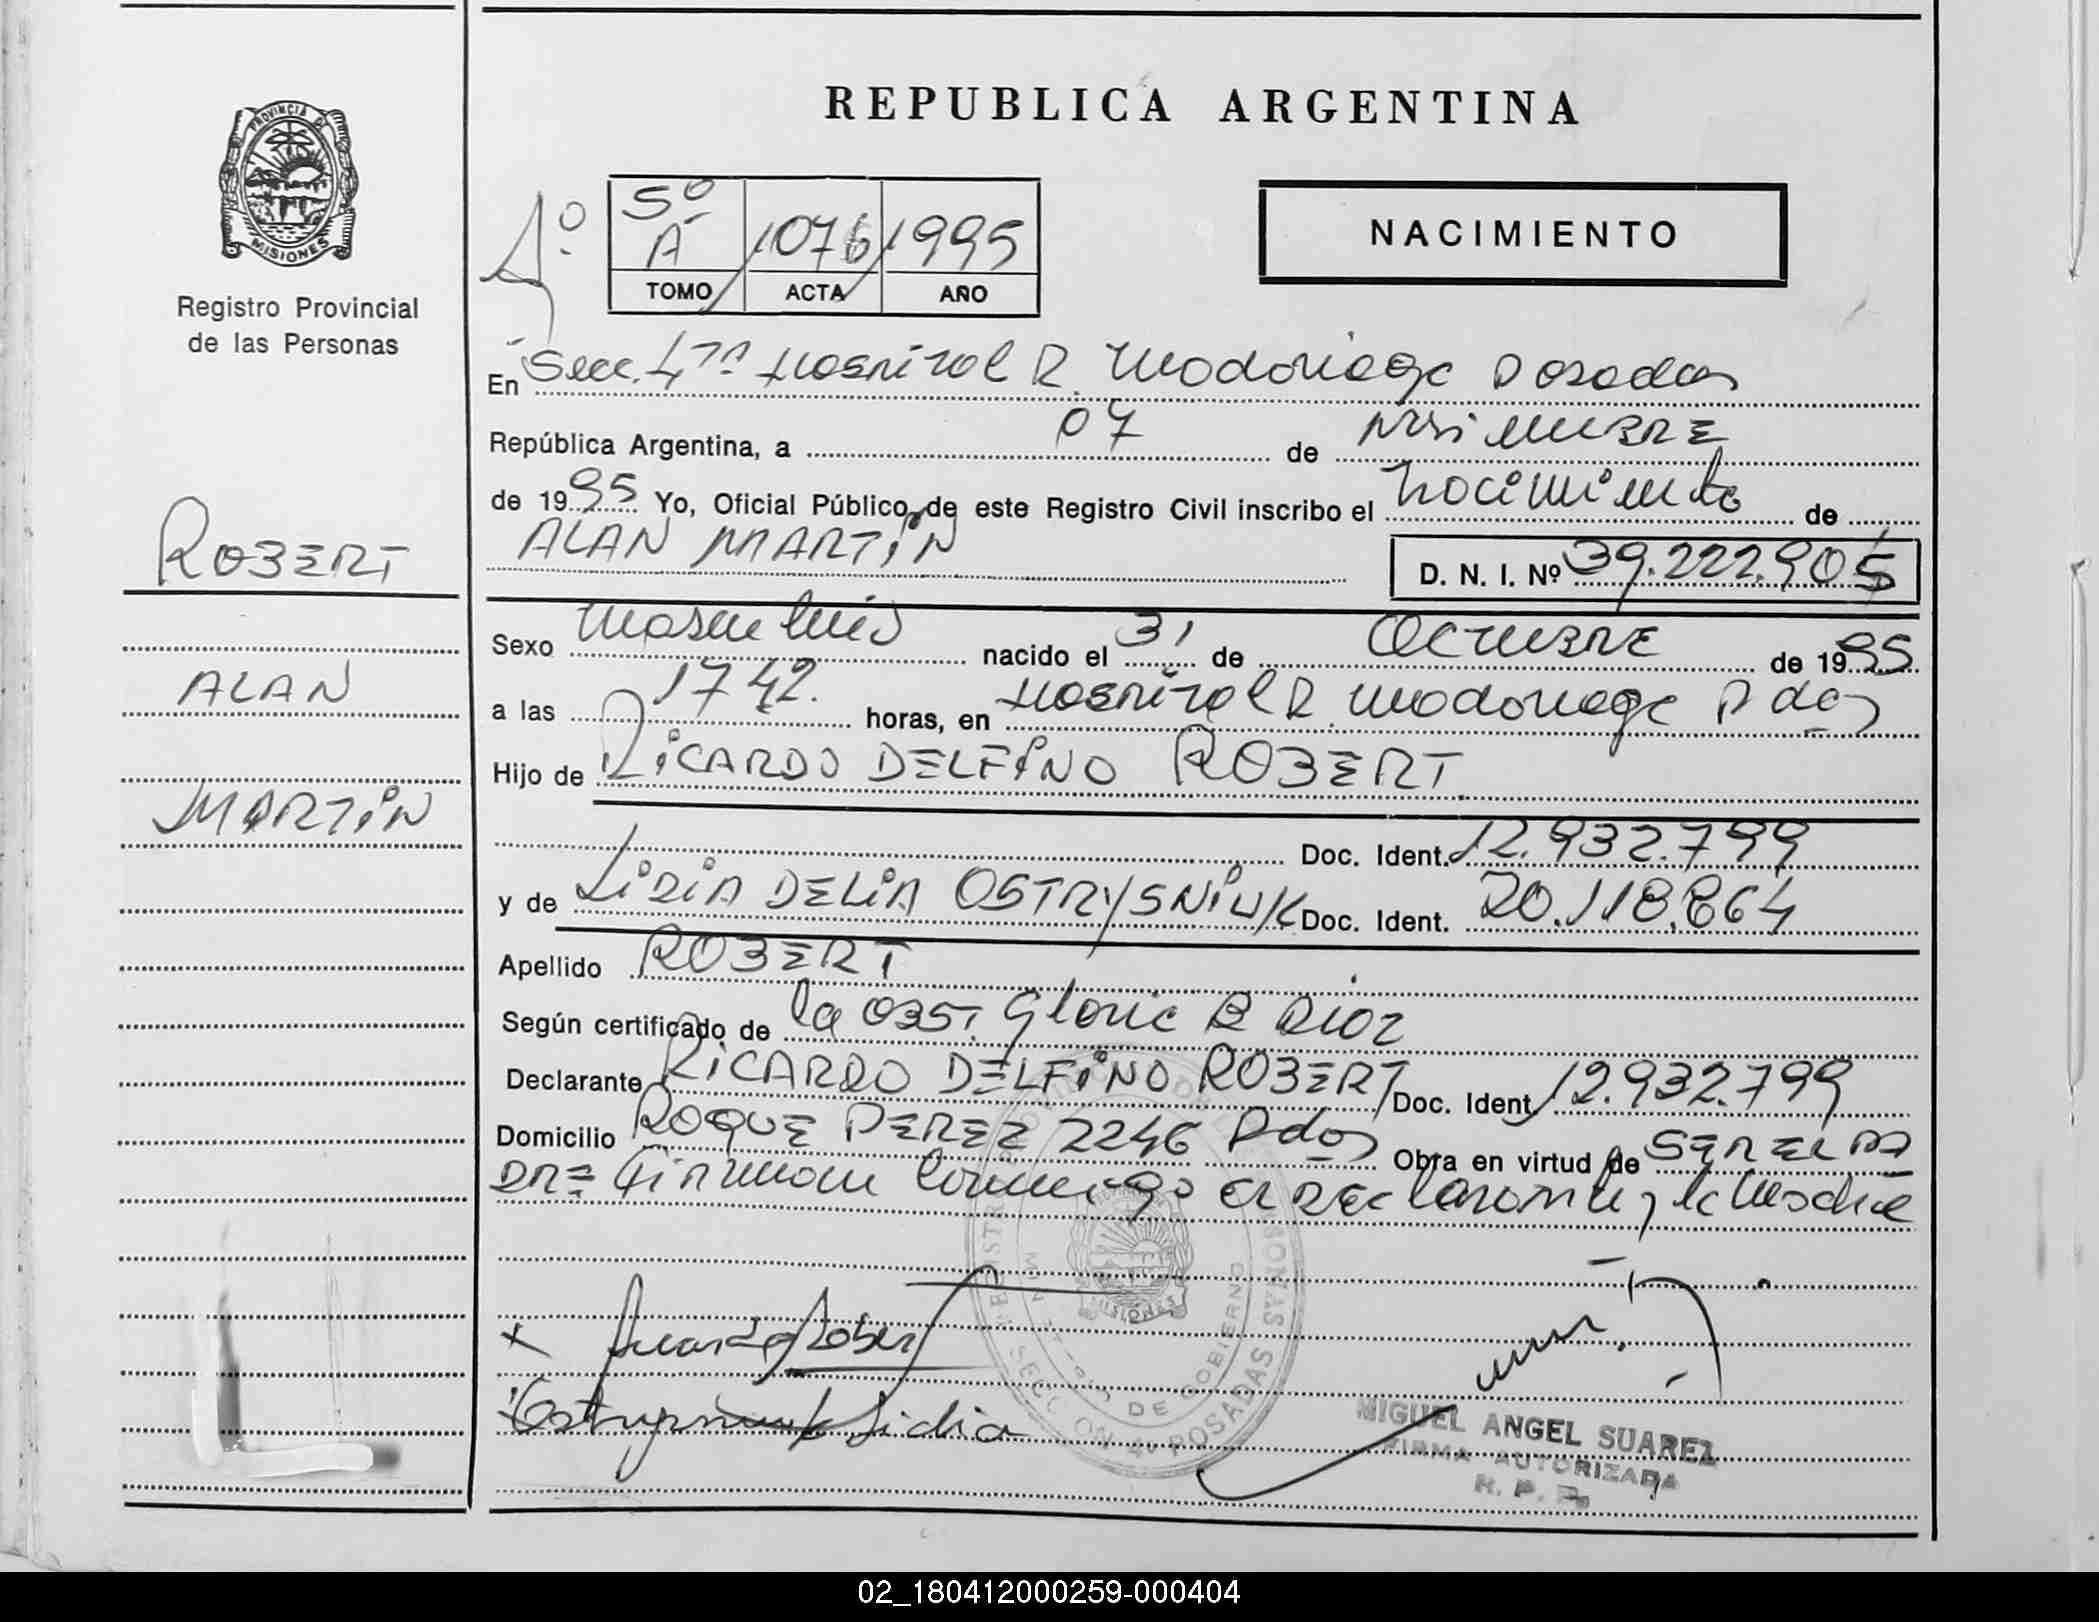 REPUBLICA ARGENTINA
PROVINCIA DE
MISIONES
Registro Provincial
de las Personas
Aº
5º
A
1076
1995
TOMO ACTA AÑO
NACIMIENTO
En Secc. 4ta Hospital R. Madariaga Posadas
República Argentina, a 07 de Noviembre
de 1995 Yo, Oficial Público de este Registro Civil inscribo el nacimiento de
ALAN MARTIN
D. N. I. Nº 39.222.905
ROBERT
ALAN
MARTIN
Sexo Masculino nacido el 31 de OCTUBRE de 1995
a las 1742. horas, en Hospital R. Madariaga Pdas
Hijo de RICARDO DELFINO ROBERT
Doc. Ident. 12.932.799
y de LIDIA DELIA OSTRYSNIUK Doc. Ident. 20.118.864
Apellido ROBERT
Según certificado de la OBST. Gloria B Dioz
Declarante RICARDO DELFINO ROBERT Doc. Ident 12.932.799
Domicilio ROQUE PEREZ 2246 Pdas Obra en virtud de SER EL PA
DRE Firman conmigo el declarante y la madre
Ricardo Robert
Ostrysniuk Lidia
MISIONES
MINISTERIO DE GOBIERNO
SECCION 4ª POSADAS
MIGUEL ANGEL SUAREZ
FIRMA AUTORIZADA
R. P. P.
02_180412000259-000404